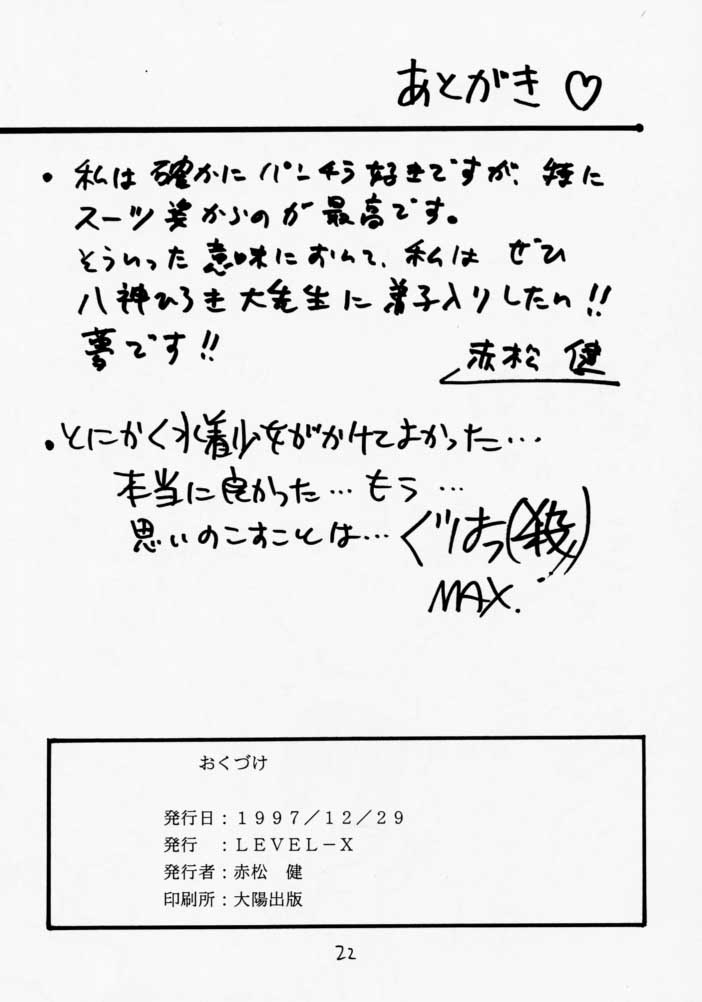 あとがき ♡
・私は確かにパンチラ好きですが、特に
スーツ姿からのが最高です。
そういった意味において、私は ぜひ
八神ひろき大先生に弟子入りしたい!!
夢です!!
赤松 健
・とにかく水着少女がかけてよかった…
本当に良かった…もう…
思いのこすことは…ぐはっ(殺)
MAX.
おくづけ
発行日：１９９７／１２／２９
発行　：ＬＥＶＥＬ－Ｘ
発行者：赤松　健
印刷所：大陽出版
22